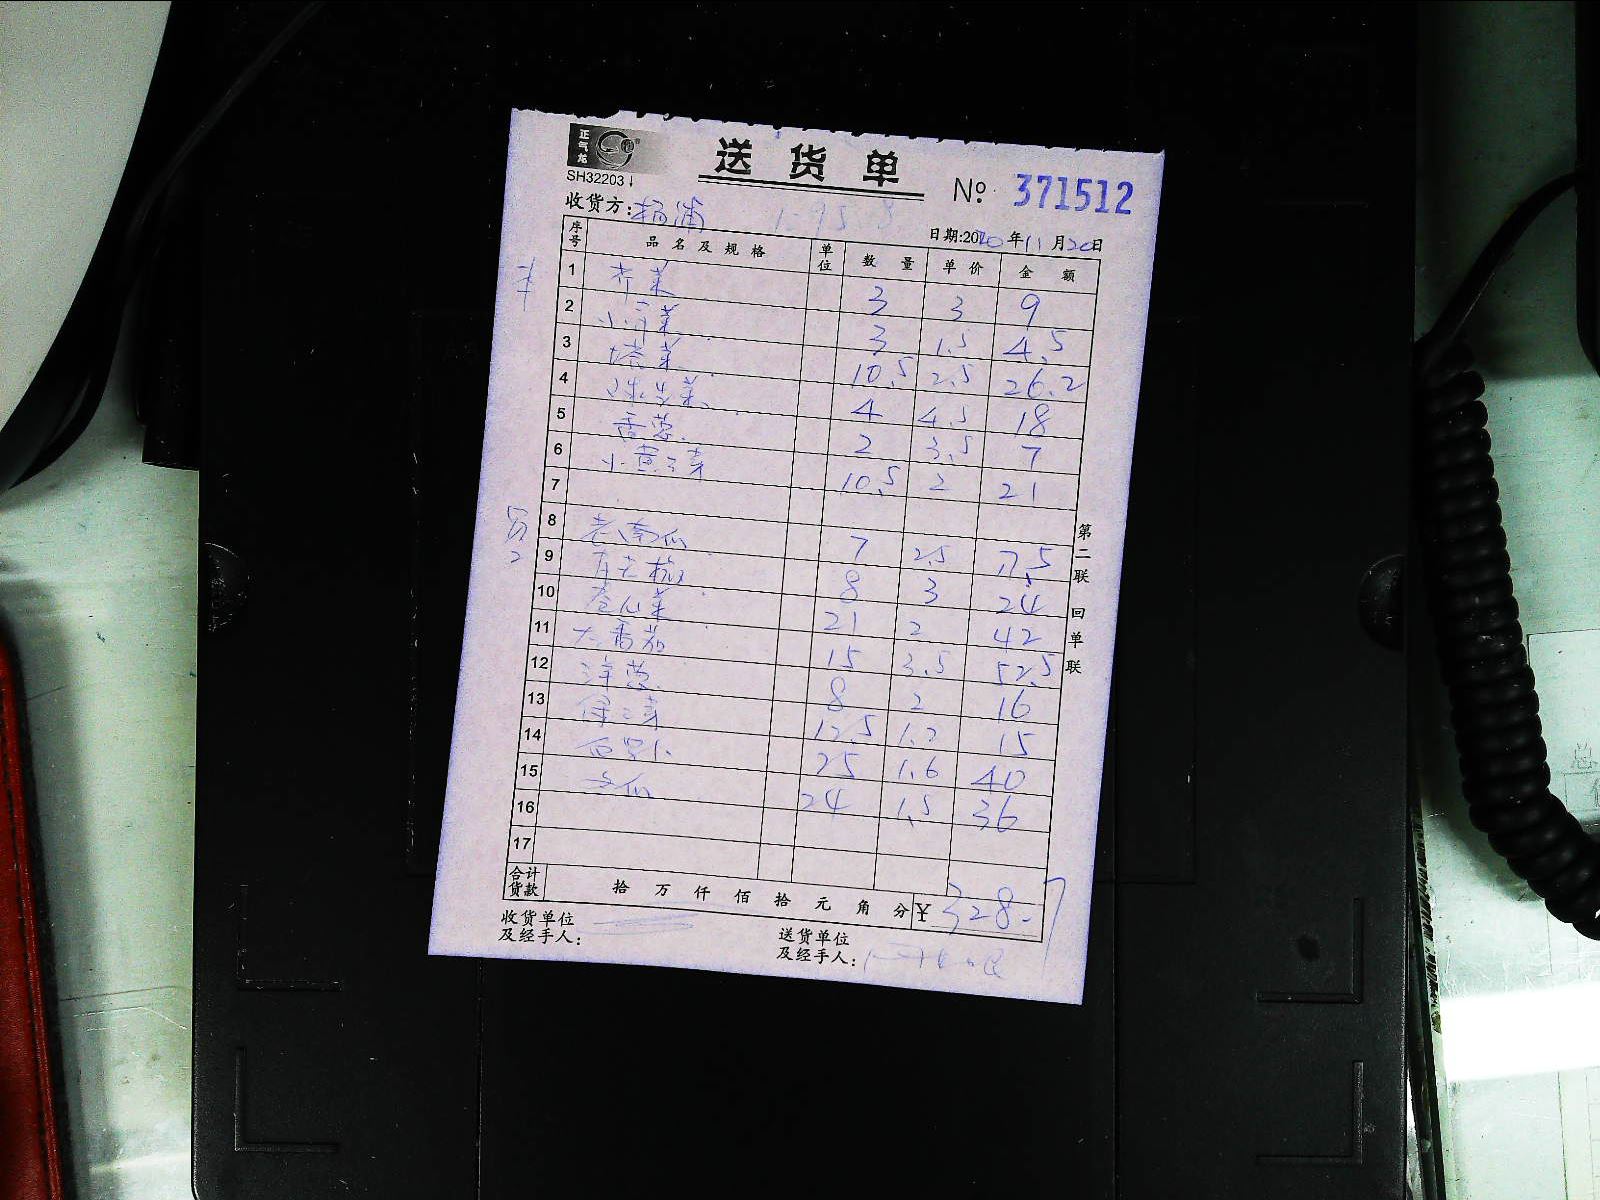 正气龙
SH32203
送货单
No. 371512
收货方: 杨浦 1-95.8
日期:2020年11月20日
序号 品名及规格 单位 数量 单价 金额
1 芥菜 3 3 9
2 3 1.5 4.5
3 塔菜 10.5 2.5 26.2
4 球生菜 4 4.5 18
5 香葱 2 3.5 7
6 小黄豆芽 10.5 2 21
7
8 老南瓜 7 2.5 17.5
9 8 3 24
10 卷心菜 21 2 42
11 大番茄 15 3.5 52.5
12 洋葱 8 2 16
13 绿豆芽 12.5 1.2 15
14 西葫 25 1.6 40
15 冬瓜 24 1.5 36
16
17
合计货款 拾 万 仟 佰 拾 元 角 分 ¥ 328.7
收货单位
及经手人:
送货单位
及经手人:
第二联 回单联